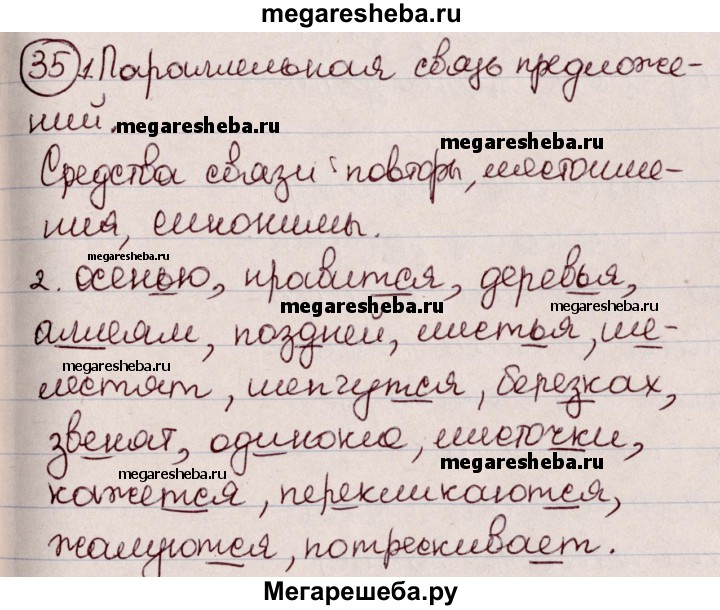 megaresheba.ru
35 1. Параллельная связь предложе-
ний.
megaresheba.ru
megaresheba.ru
Средства связи: повторы, местоиме-
ния, синонимы.
megaresheba.ru
2. осенью, нравится, деревья,
megaresheba.ru
megaresheba.ru
аллеям, поздней, листья, ше-
megaresheba.ru
лестят, шепчутся, березках,
звенят, одиноко, листочки,
megaresheba.ru
megaresheba.ru
кажется, перекликаются,
жалуются, потрескивает.
Мегарешеба.ру